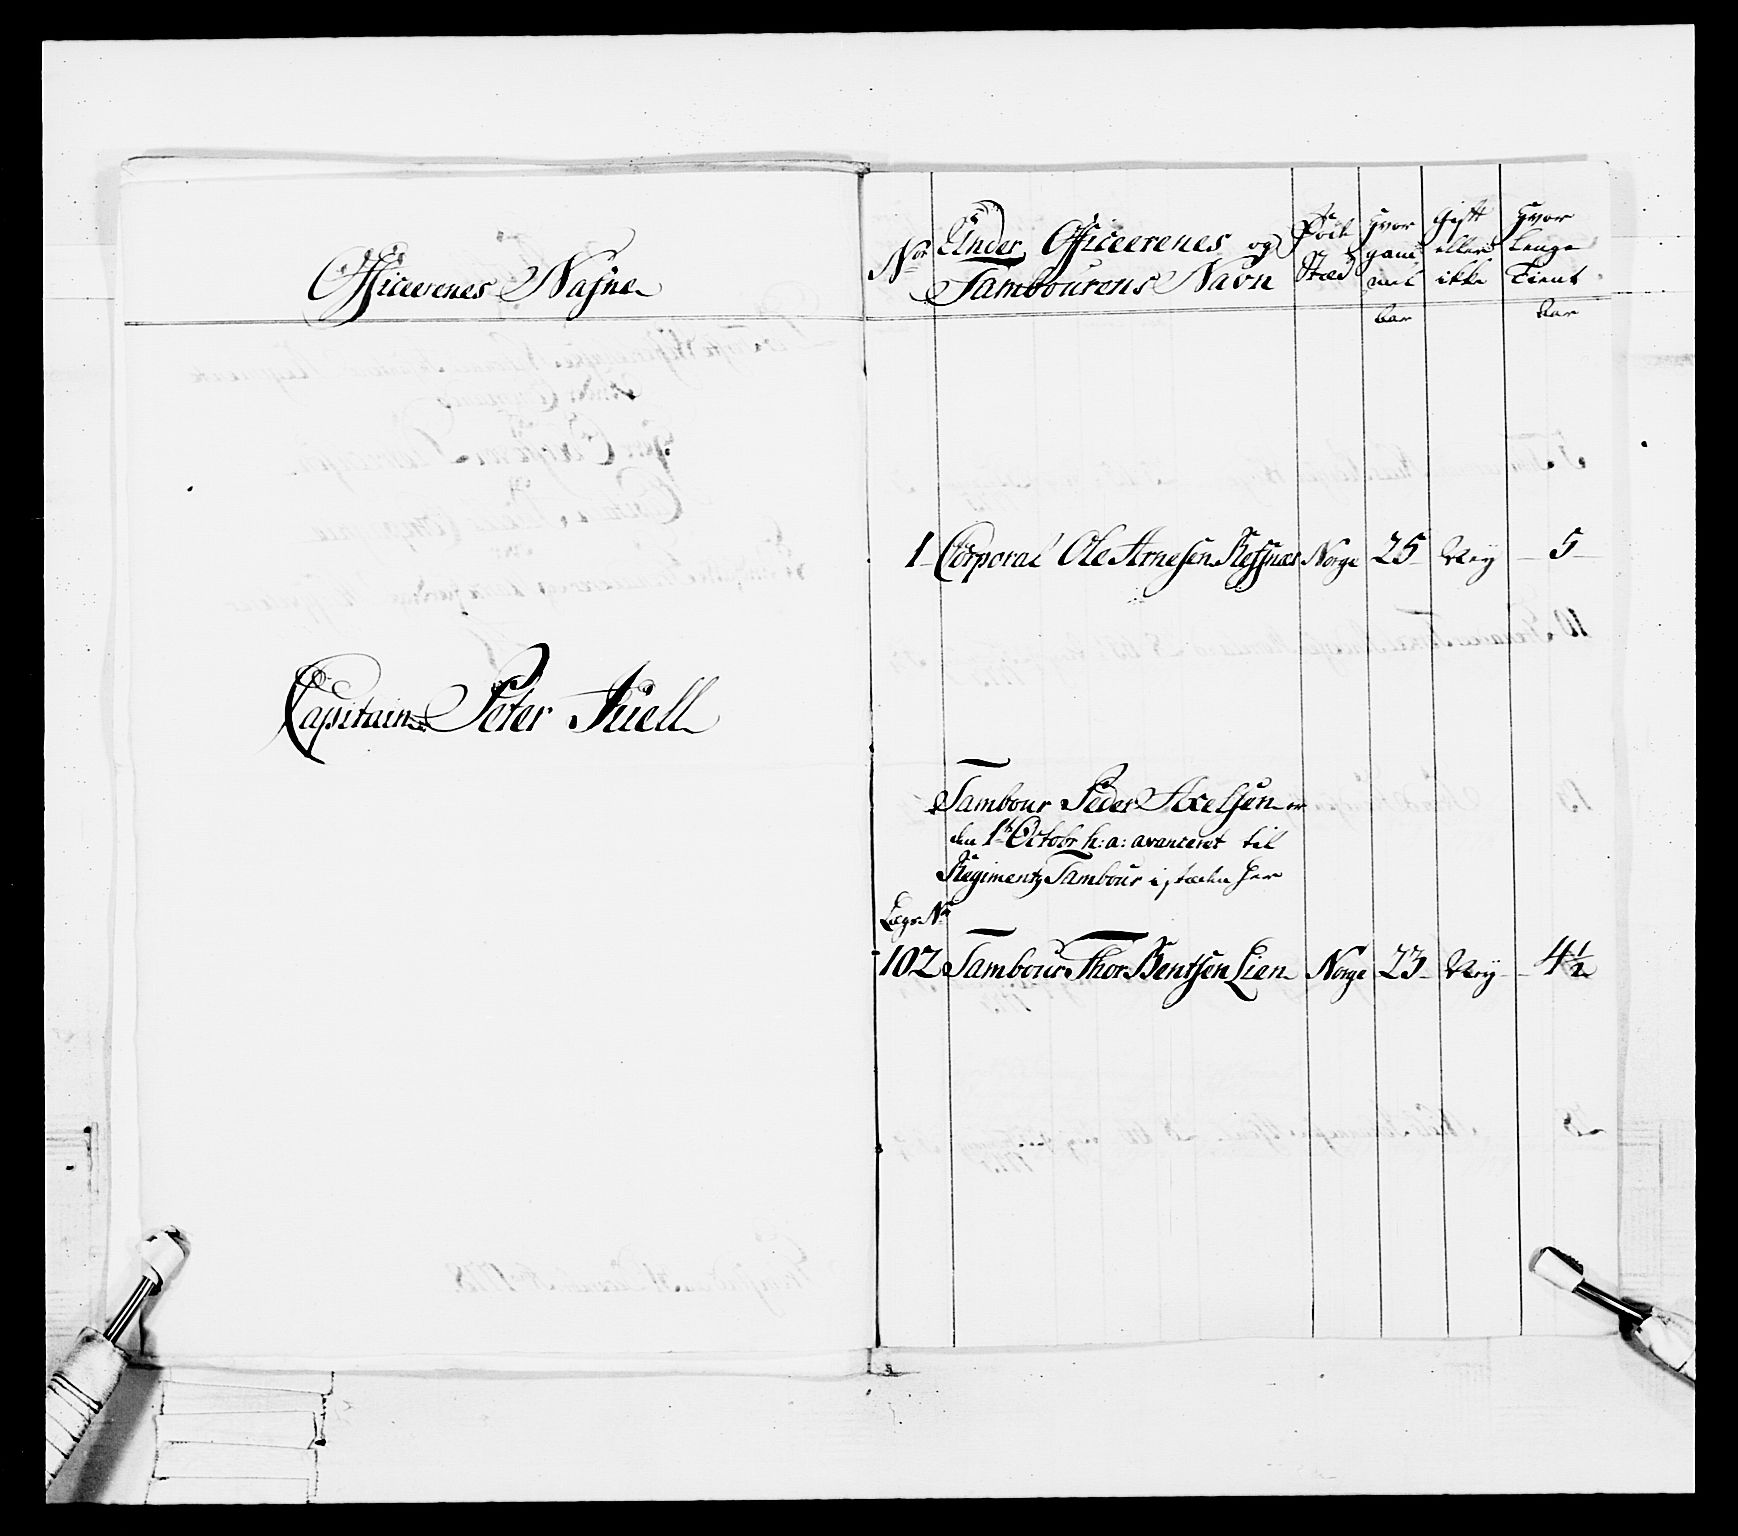 Officerenes Nafne
Capitain Peter Juell
No Under Officeerenes og
Tambourens Navn
Föde
Stæd
Hvor
gam̅el
Aar
Gift
eller
ikke
Hvor
Længe
Tient
Aar
1 Corporal Ole Arnesen Refsnæs Norge 25 Ney 5
Tambour Peder Axelsen er
den 1te Octobr h: a: avanceret til
Regiments Tambour i stæden her
Lægs No
102 Tambour Thor Bentsen Lien Norge 23 Ney 4½